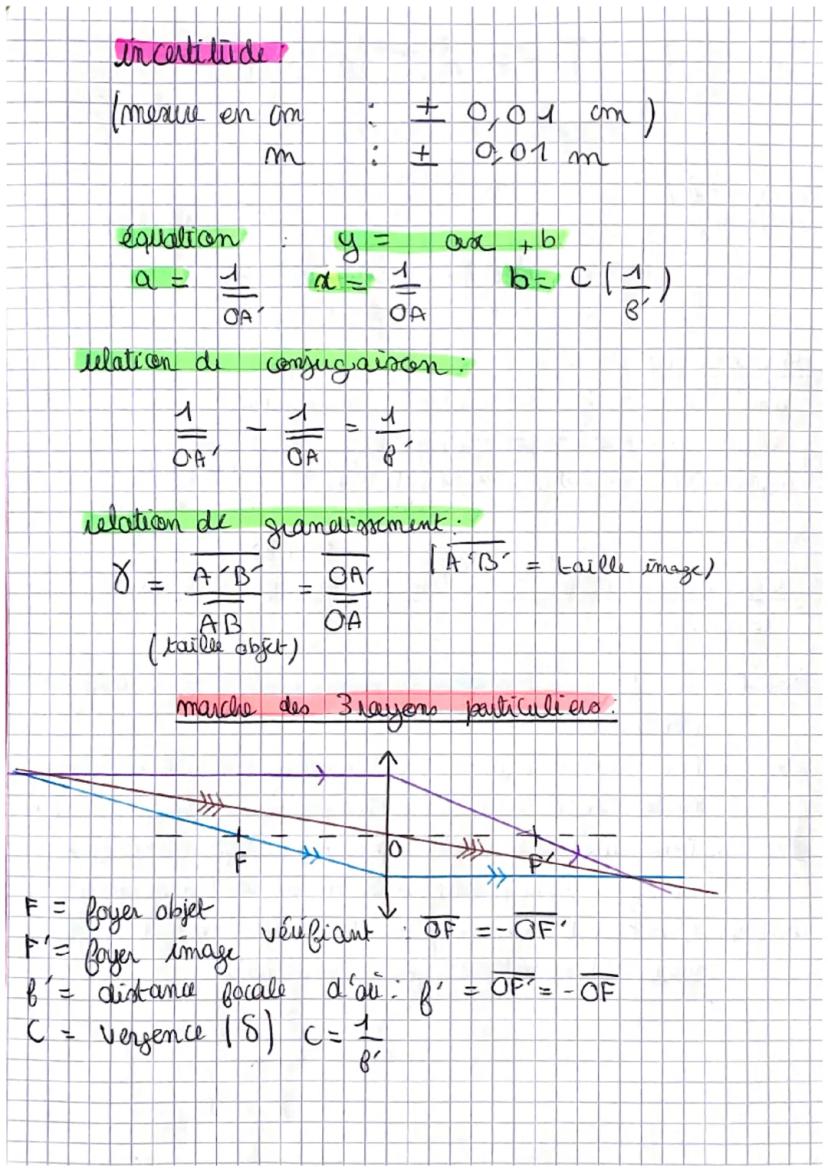 incertitude :
(mesure en cm : ± 0,01 cm)
m : ± 0,01 m
équation : y = ax + b
a = 1/OA' x = 1/OA b = C (1/f')
relation de conjugaison :
1/OA' - 1/OA = 1/f'
relation de grandissement :
γ = A'B'/AB = OA'/OA (A'B' = taille image)
(taille objet)
marche des 3 rayons particuliers :
O
F F'
F = foyer objet
F' = foyer image vérifiant : OF = - OF'
f' = distance focale d'où : f' = OF' = - OF
C = vergence (δ) C = 1/f'